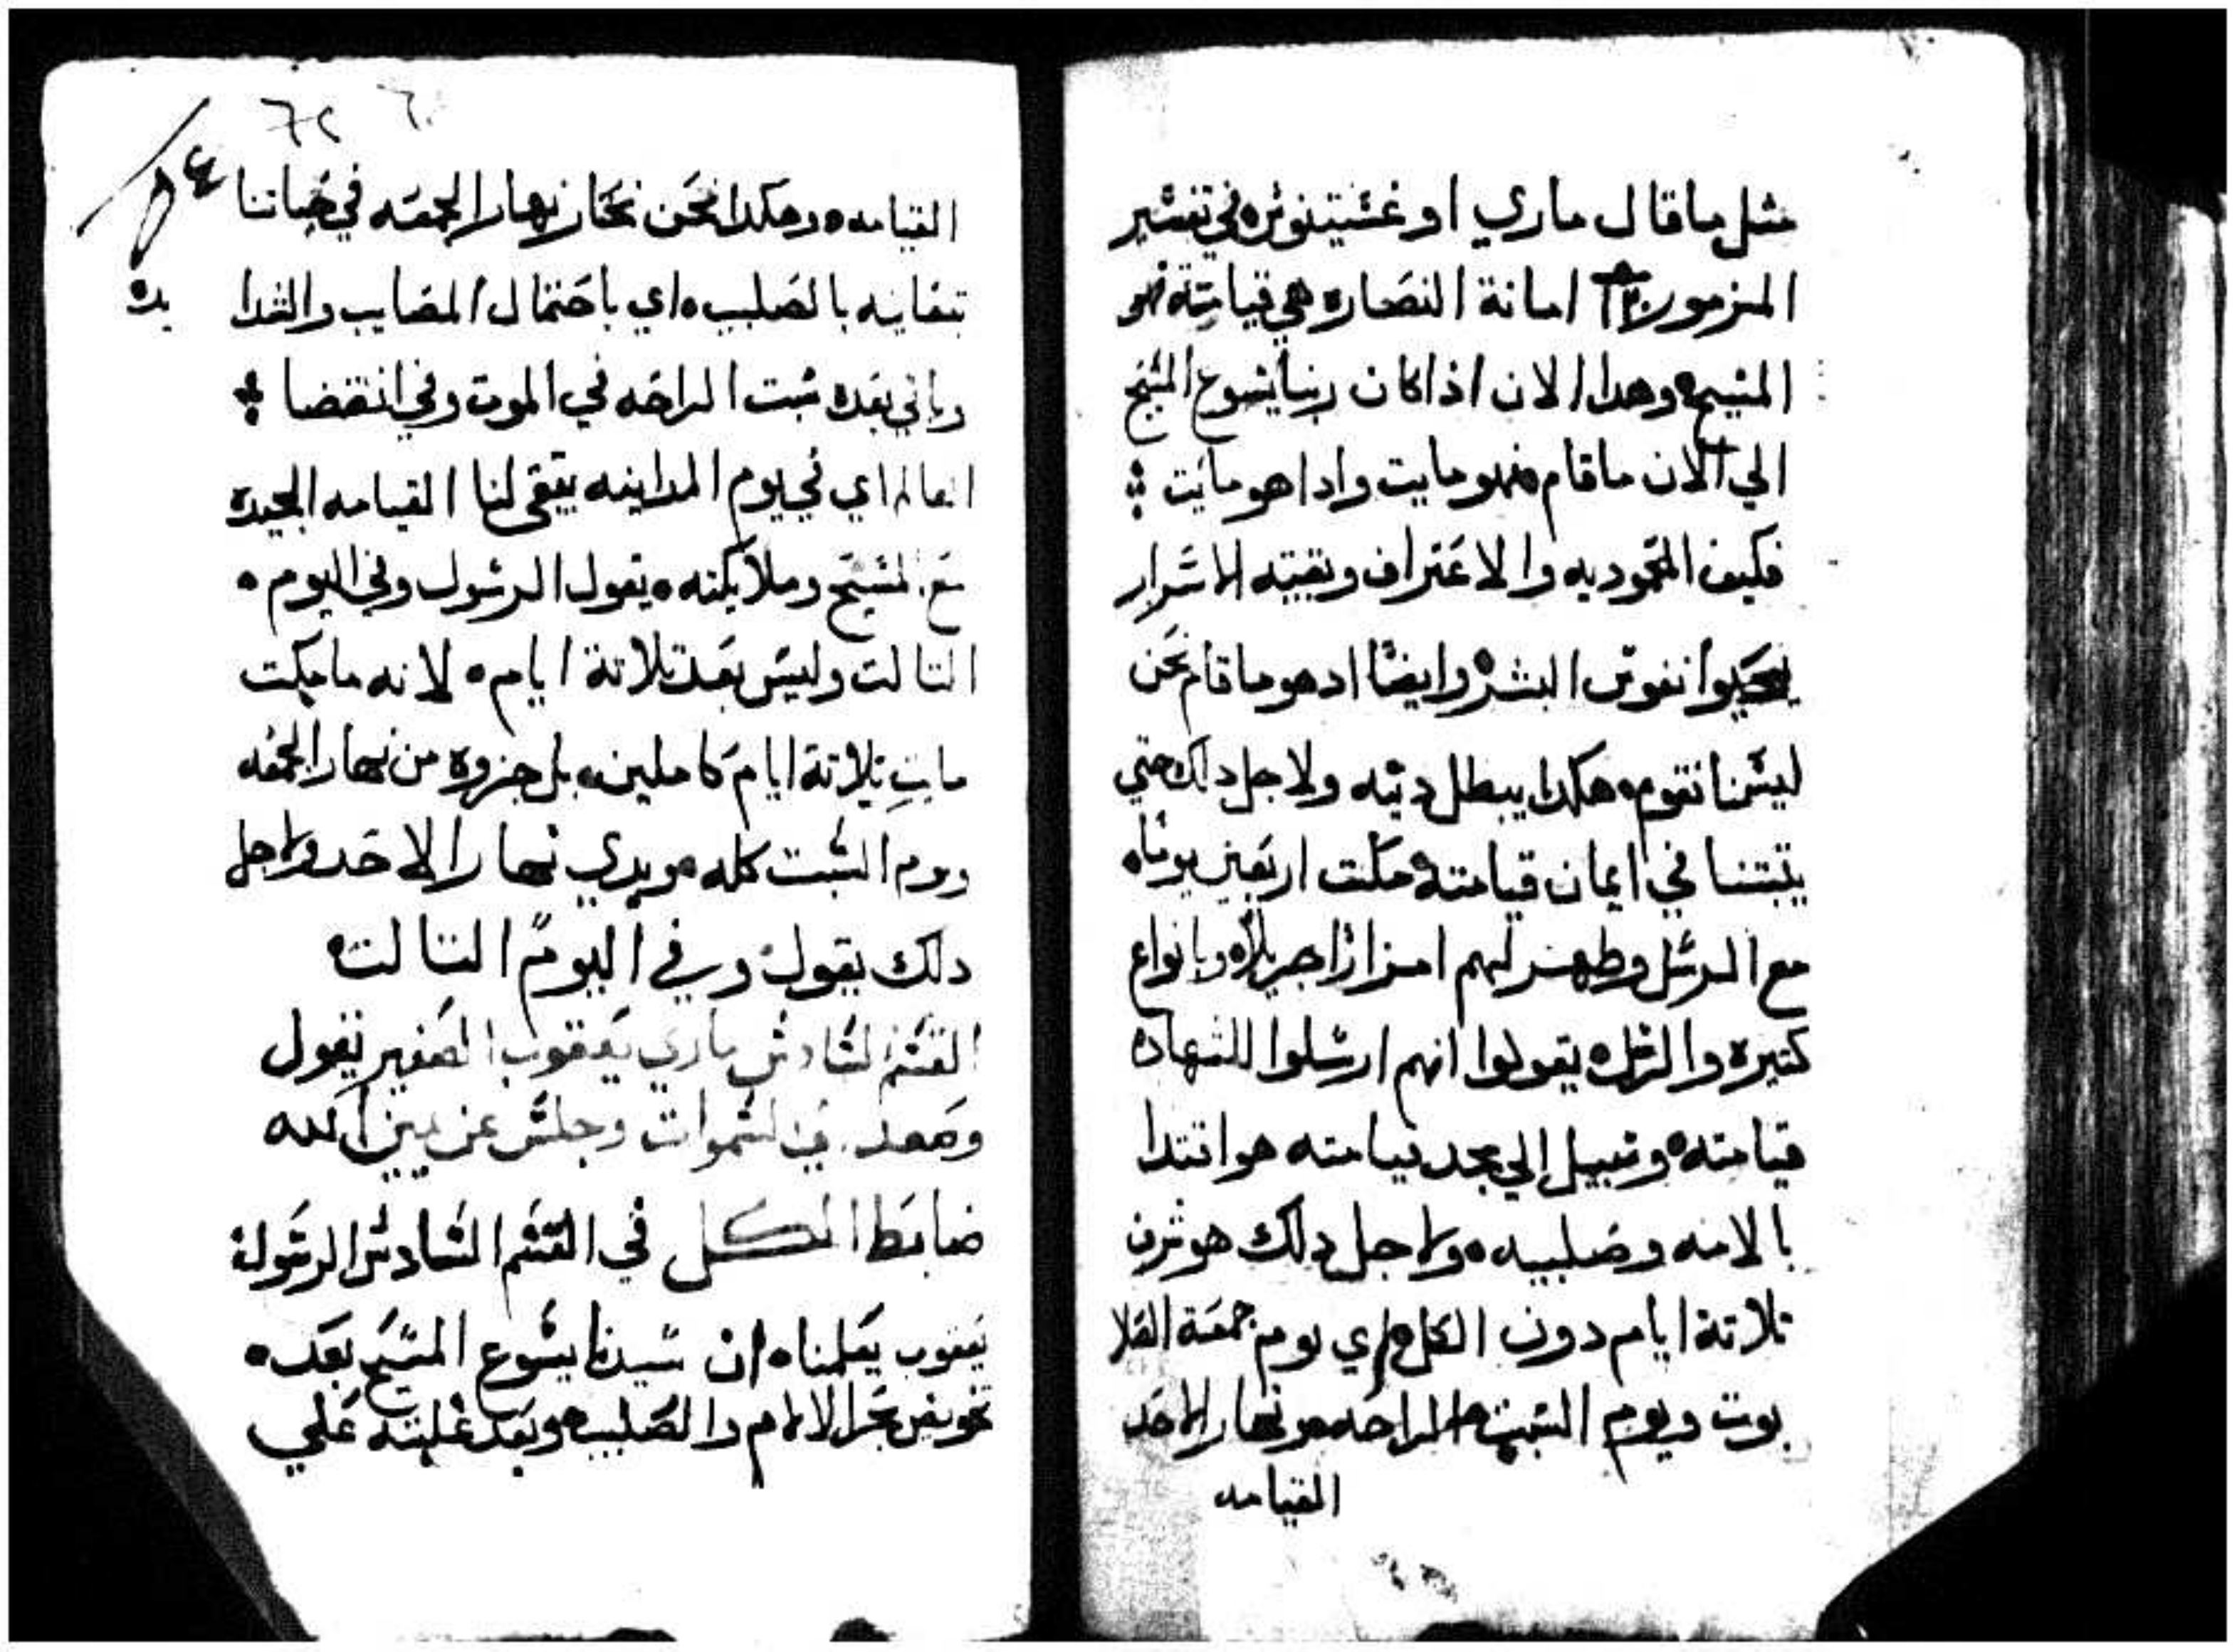 مثل ما قال ماري اوغشتينوش في تفشير
المزمور امانة النصاره هي قيامته
المشيح وهدا الان اذا كان ربنا يشوع المشيح
الي الان ما قام فهو مايت وادا هو مايت
فكيف المعموديه والاعتراف وبقيته الاشرار
يحيوا نفوش البشر وايضا اد هو ما قام نحن
ليشنا نقوم هكدا يبطل دينه ولاجل دلك حتي
يتبتنا في ايمان قيامته مكت اربعين يوما
مع الرشل وطهر لهم امرارا جزيلاه وبانواع
كتيره والرشل يقولوا انهم ارشلوا للشهاده
قيامته وشبيل الي مجد قيامته هو اقتدا
بالامه وصليبه ولاجل دلك هو شرف
تلاتة ايام دون الكل اي يوم جمعة الصلا
بوت ويوم الشبت الراحه ونهار الاحد
القيامه
٦٢ ٦٠
٥٤
القيامه وهكدا نحن نحتاز نهار الجمعه في حياتنا
بالصليب اي باحتمال المصايب والشدا
يده
وياتي بعده شبت الراحه في الموت وفي انقضا
العالم اي في يوم المداينه يبقي لنا القيامه المجيده
مع المشيح وملايكته يقول الرشول وفي اليوم
التالت وليش بعد تلاتة ايام لانه ما مكت
مايت تلاتة ايام كاملين بل جزوه من نهار الجمعه
ويوم الشبت كله وبدي نهار الاحد ولاجل
دلك يقول وفي اليوم التالت
القشم الشادش ماري يعقوب الصغير يقول
وصعد الشموات وجلش عن يمين الله
ضابط الكل في القشم الشادش الرشول
يعقوب يعلمنا ان شيدنا يشوع المشيح بعد
بحر الالام والصليب وبعد غلبته علي